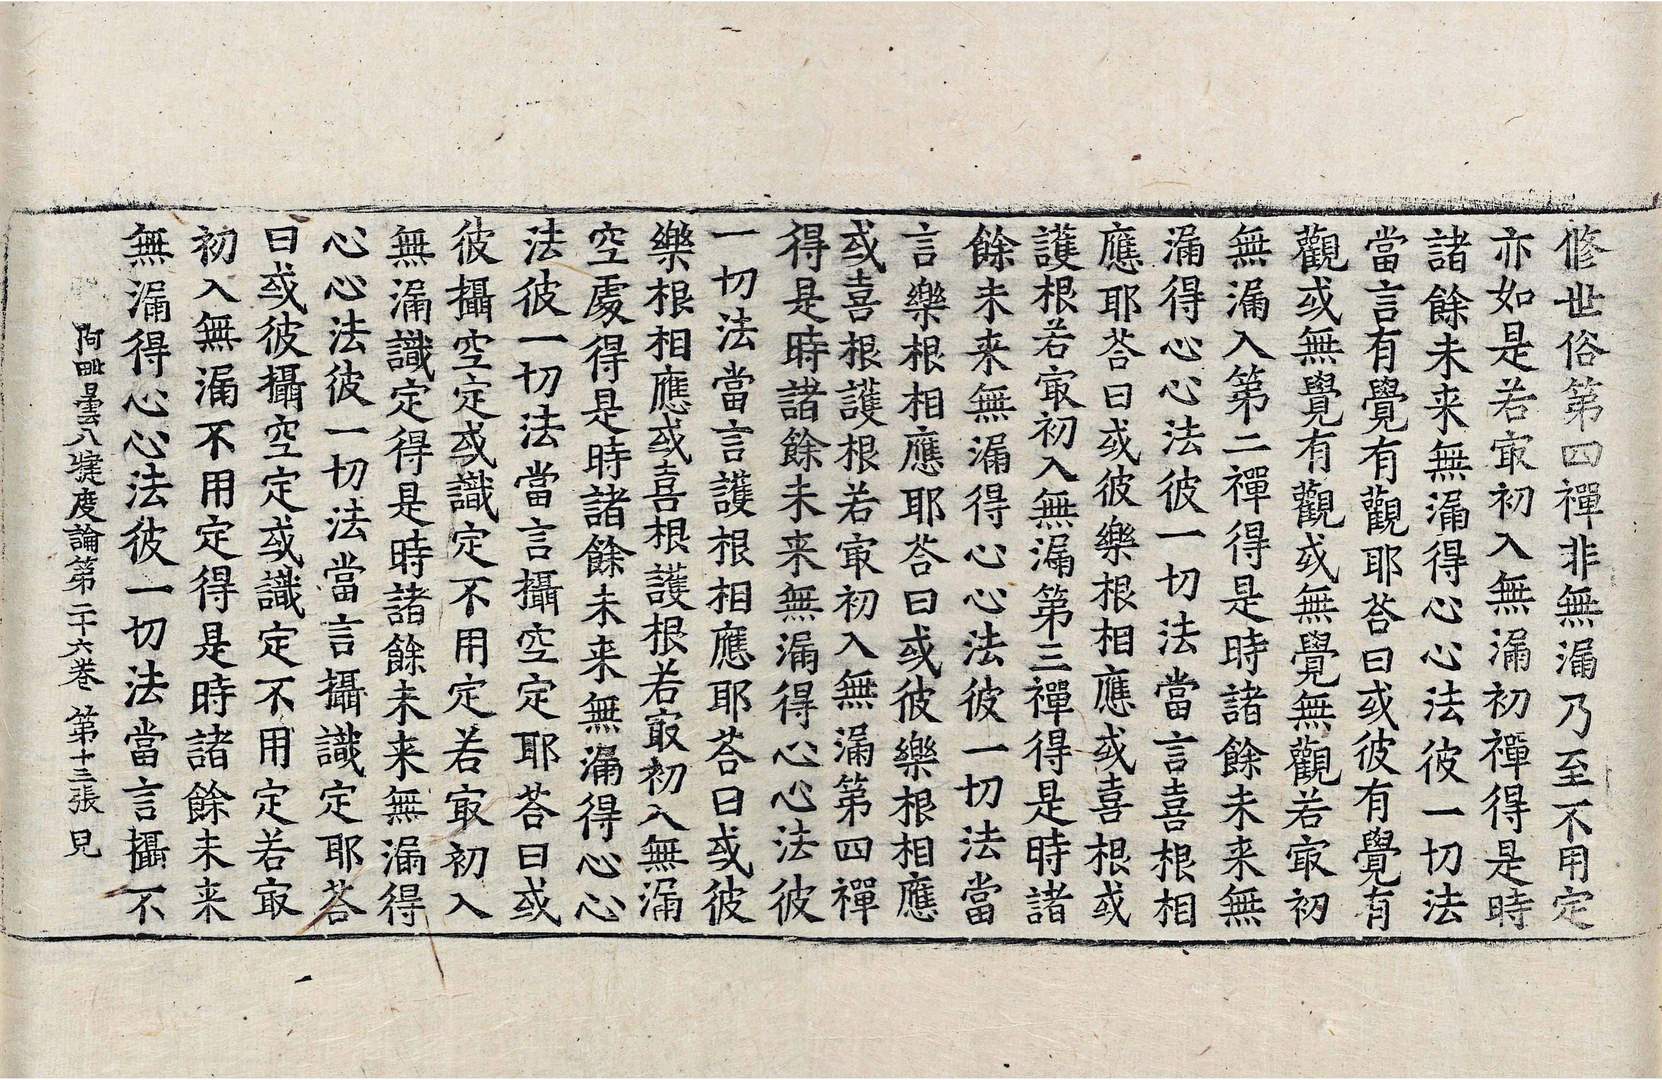 修世俗第四禪非無漏乃至不用定
亦如是若㝡初入無漏初禪得是時
諸餘未来無漏得心心法彼一切法
當言有覺有觀耶荅曰或彼有覺有
觀或無覺有觀或無覺無觀若㝡初
無漏入第二禪得是時諸餘未来無
漏得心心法彼一切法當言喜根相
應耶荅曰或彼樂根相應或喜根或
護根若㝡初入無漏第三禪得是時諸
餘未来無漏得心心法彼一切法當
言樂根相應耶荅曰或彼樂根相應
或喜根護根若㝡初入無漏第四禪
得是時諸餘未来無漏得心心法彼
一切法當言護根相應耶荅曰或彼
樂根相應或喜根護根若㝡初入無漏
空處得是時諸餘未来無漏得心心
法彼一切法當言攝空定耶荅曰或
彼攝空定或識定不用定若㝡初入
無漏識定得是時諸餘未来無漏得
心心法彼一切法當言攝識定耶荅
曰或彼攝空定或識定不用定若㝡
初入無漏不用定得是時諸餘未来
無漏得心心法彼一切法當言攝不
阿毗曇八犍度論第二十六卷 第十三張 見